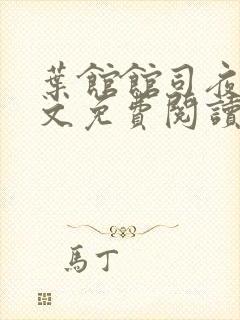 葉館館司夜
文免費閱讀
馬丁